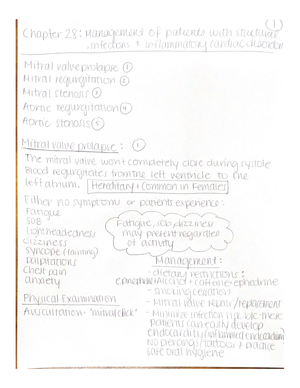 (1)
Chapter 28: Management of patients with structural
, infectious + inflammatory cardiac disorders
Mitral valve prolapse ①
Mitral regurgitation ②
Mitral stenosis ③
Aortic regurgitation ④
Aortic stenosis ⑤
Mitral valve prolapse: ①
The mitral valve won't completely close during systole
Blood regurgitates from the left ventricle to the
left atrium. Hereditary + Common in Females
Either no symptoms or patients experience:
Fatigue
SOB
lightheadedness
dizziness
syncope (fainting)
palpitations
Chest pain
anxiety
Fatigue, SOB, dizziness
may present regardless
of activity
Physical Examination
Auscultation - "mitral click"
Management:
- dietary restrictions:
Alcohol + caffeine + ephedrine
epinephrine
- smoking cessation
- Mitral valve repair / replacement
- Minimize infection risk b/c these
patients can easily develop
endocarditis (inflammed endocardium)
No piercing/tattoos + practice
safe oral hygiene